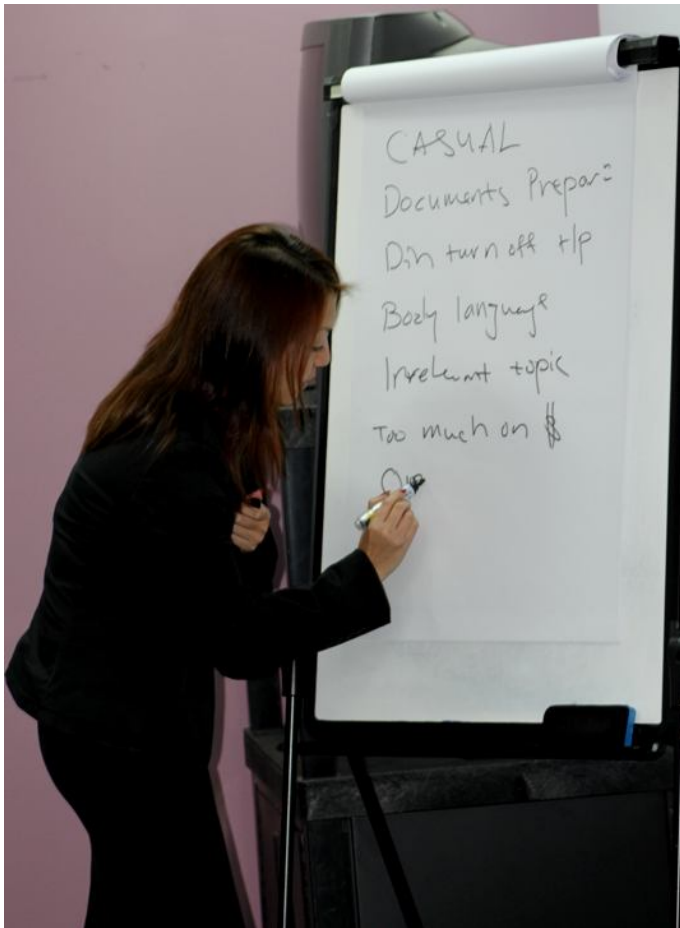 CASUAL
Documents Prepar=
Din turn off t/p
Body language
Irrelevant topic
Too much on $